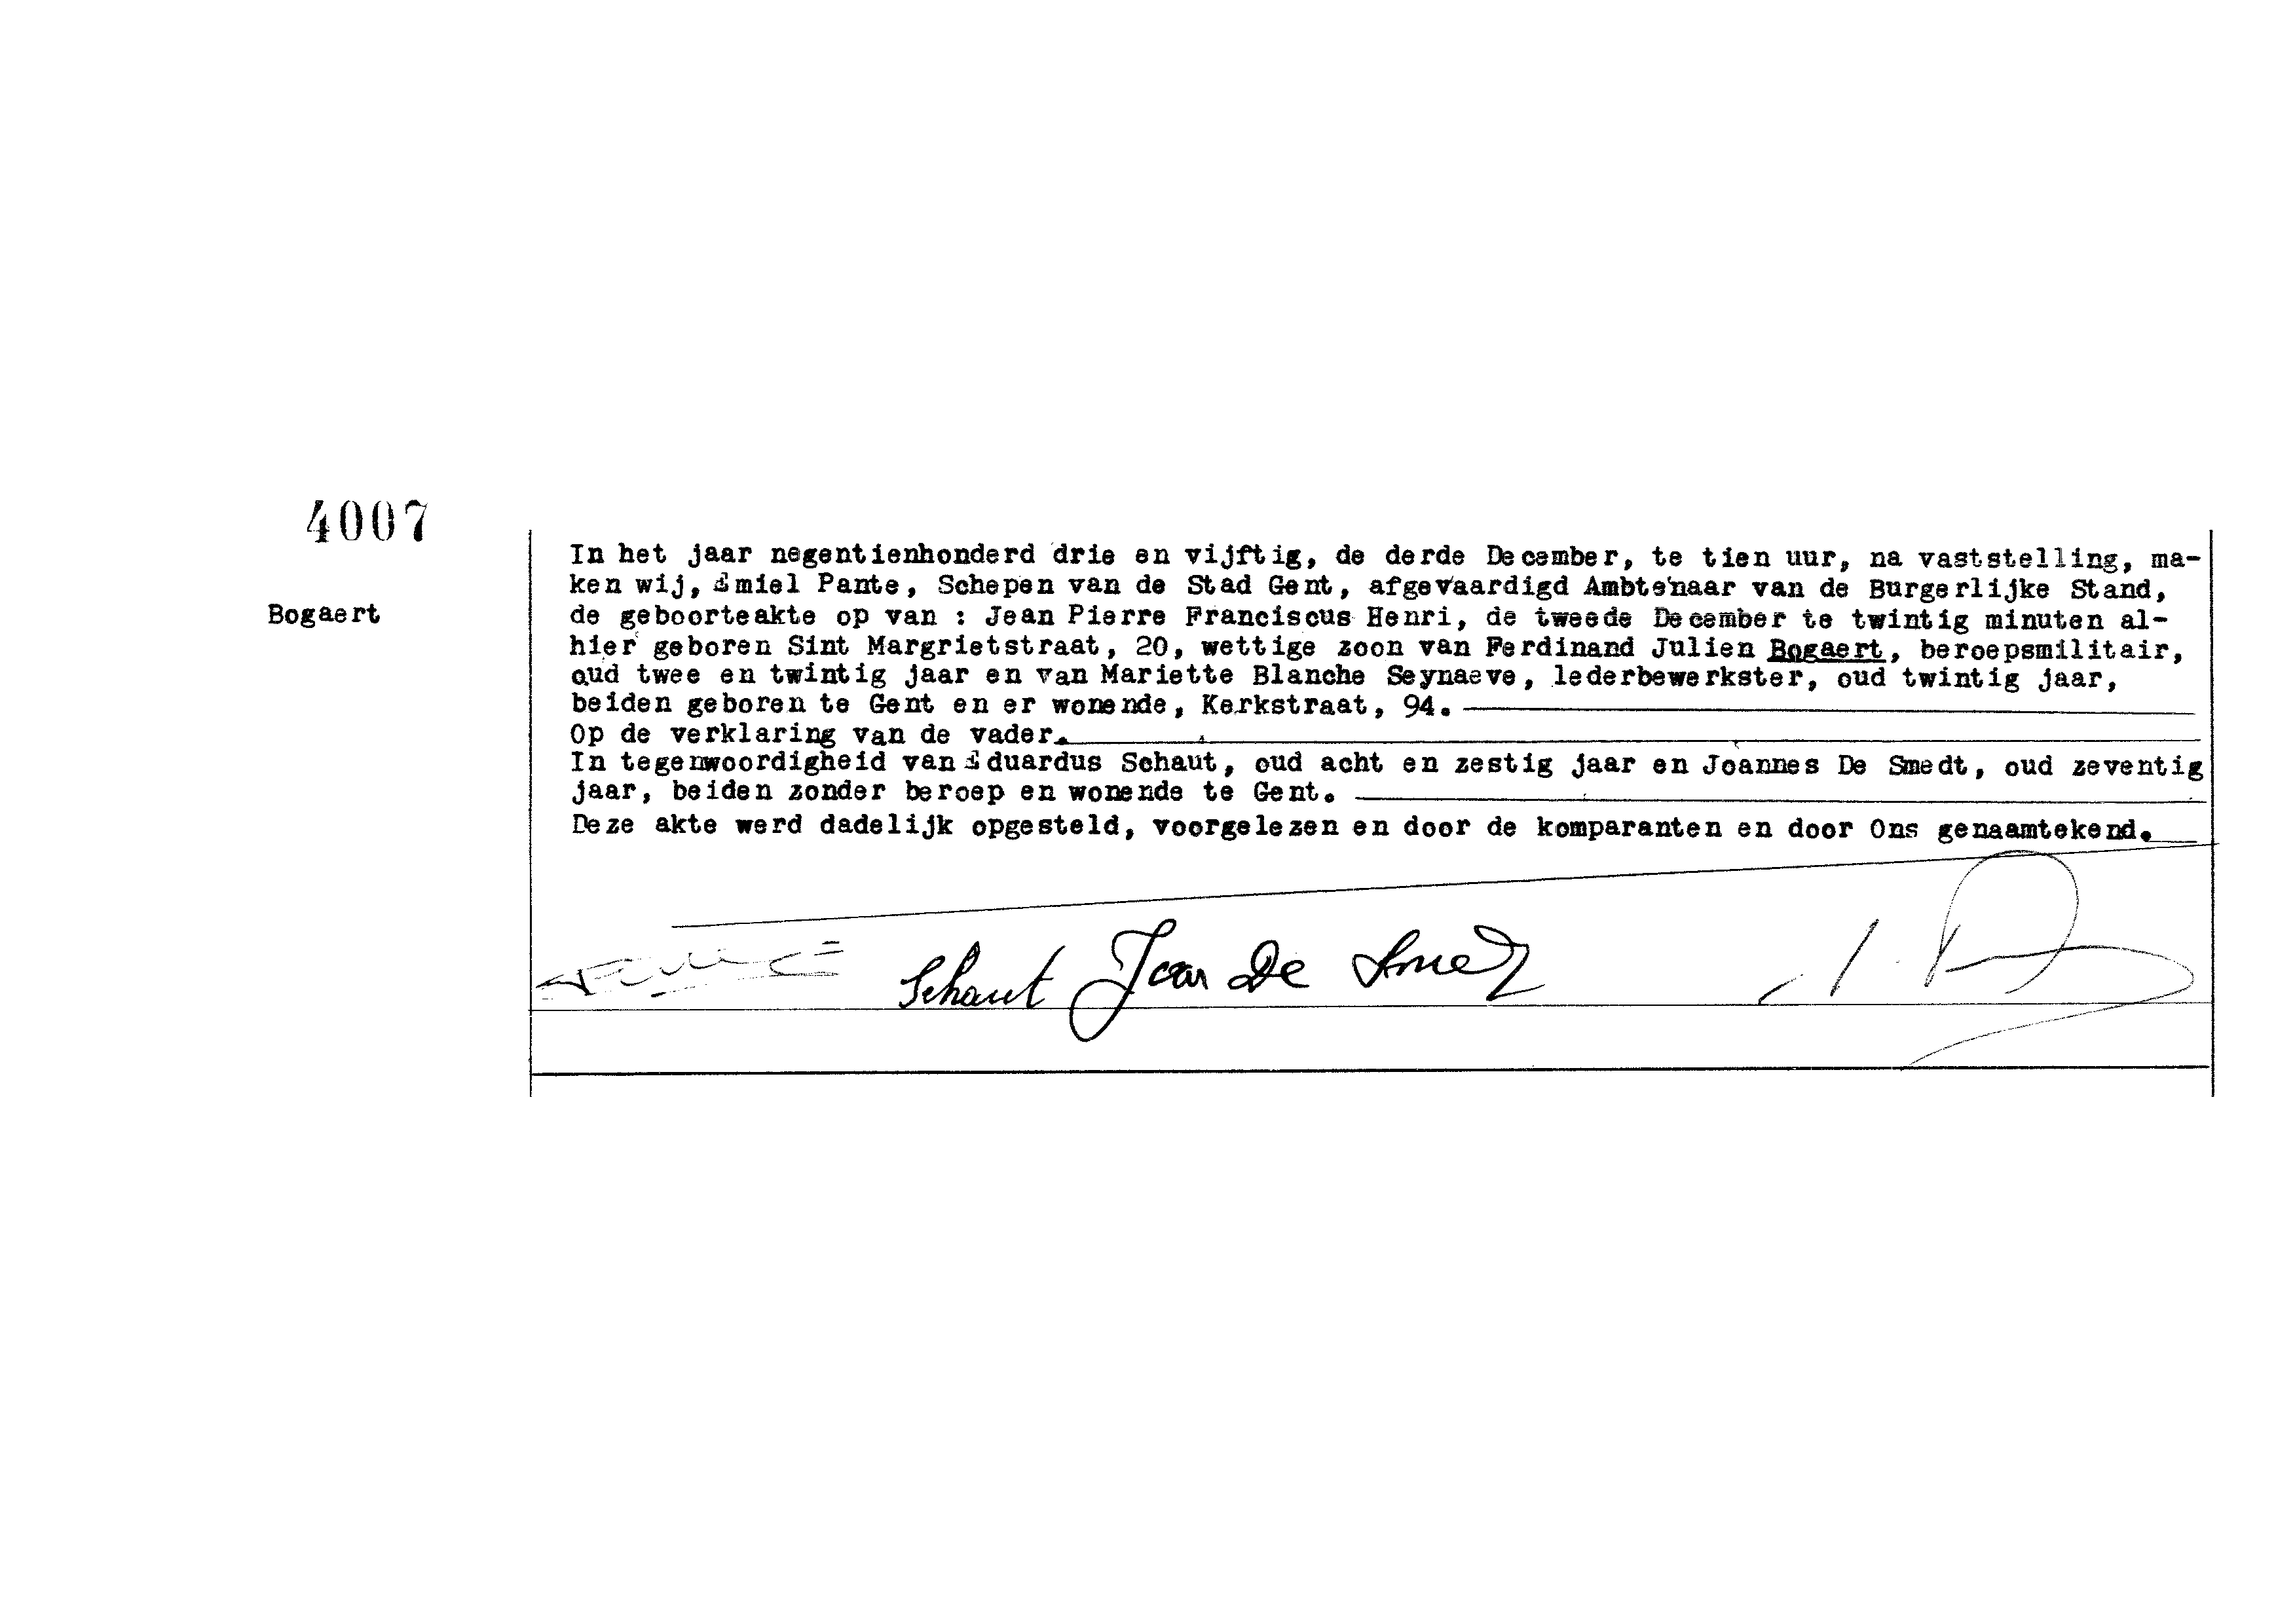 4007
Bogaert
In het jaar negentienhonderd drie en vijftig, de derde December, te tien uur, na vaststelling, ma-
ken wij, Emiel Pante, Schepen van de Stad Gent, afgevaardigd Ambtenaar van de Burgerlijke Stand,
de geboorteakte op van : Jean Pierre Franciscus Henri, de tweede December te twintig minuten al-
hier geboren Sint Margrietstraat, 20, wettige zoon van Ferdinand Julien Bogaert, beroepsmilitair,
oud twee en twintig jaar en van Mariette Blanche Seynaeve, lederbewerkster, oud twintig jaar,
beiden geboren te Gent en er wonende, Kerkstraat, 94.
Op de verklaring van de vader.
In tegenwoordigheid van Eduardus Schaut, oud acht en zestig jaar en Joannes De Smedt, oud zeventig
jaar, beiden zonder beroep en wonende te Gent.
Deze akte werd dadelijk opgesteld, voorgelezen en door de komparanten en door Ons genaamtekend.
Schaut Jean De